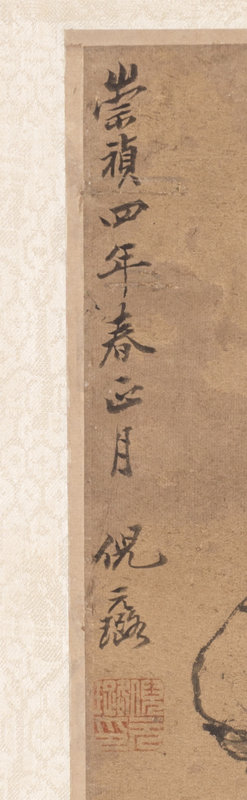 崇禎四年春正月倪元璐